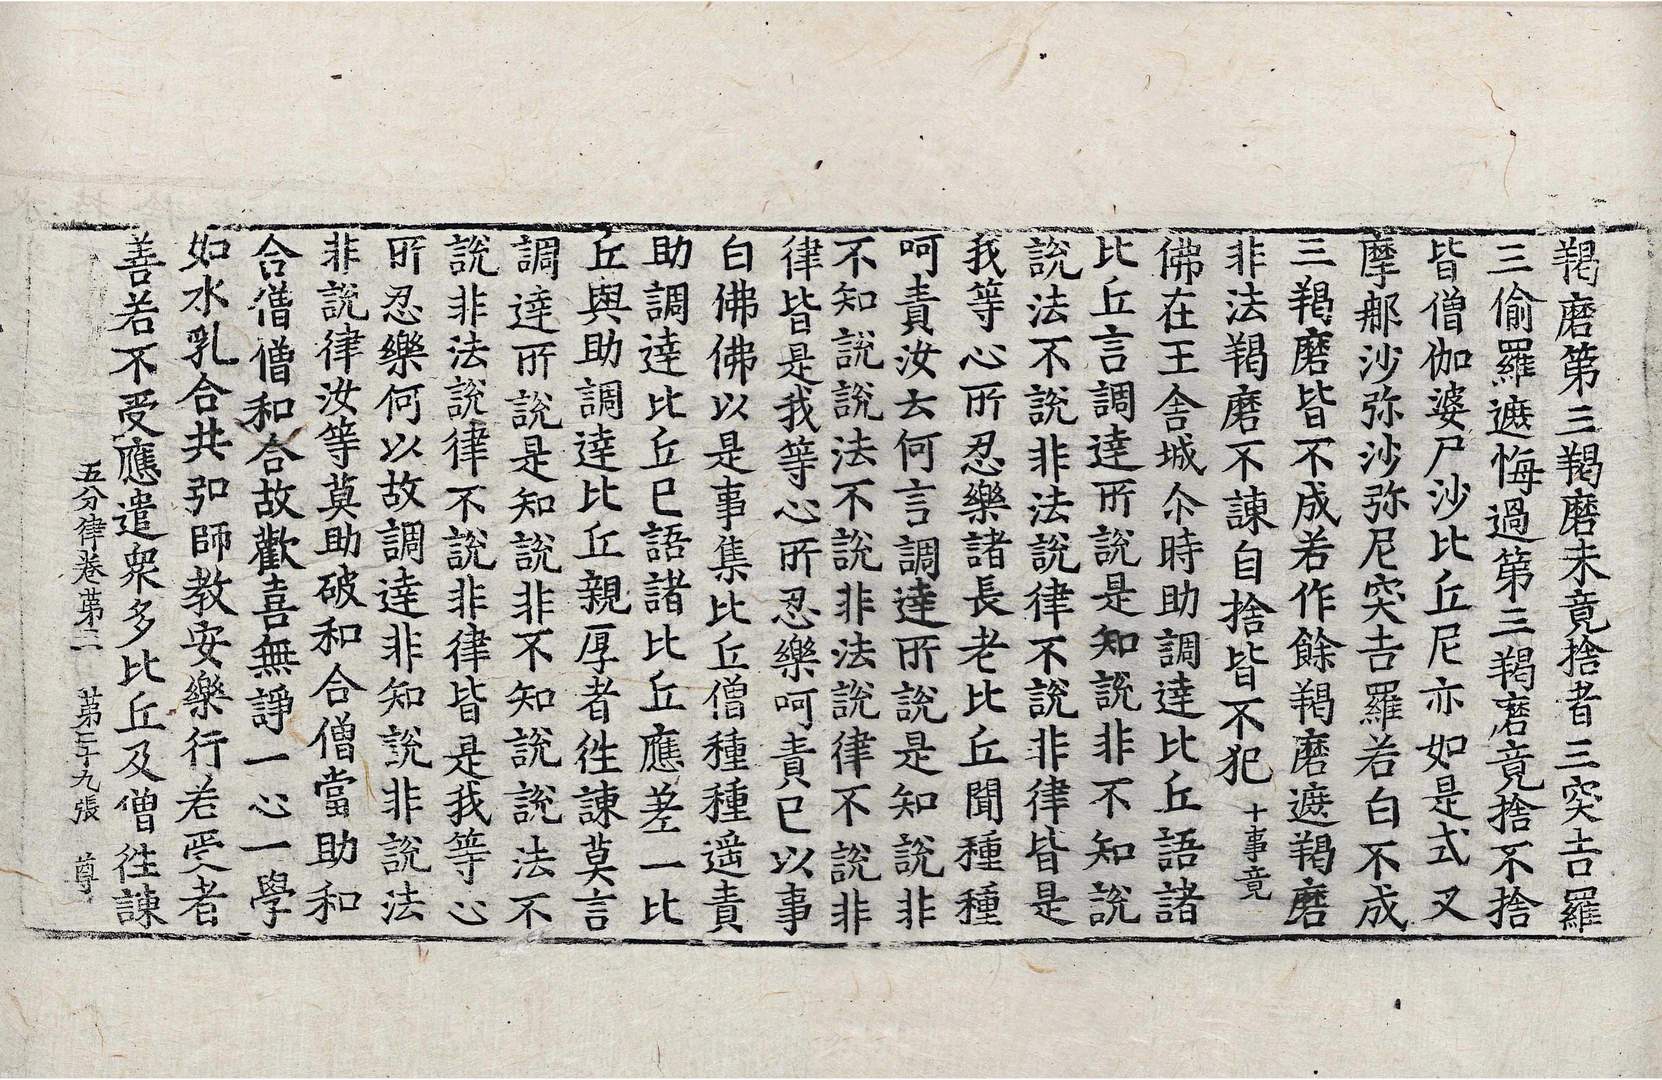 羯磨第三羯磨未竟捨者三突吉羅
三偷羅遮悔過第三羯磨竟捨不捨
皆僧伽婆尸沙比丘尼亦如是式叉
摩那沙弥沙弥尼突吉羅若白不成
三羯磨皆不成若作餘羯磨遮羯磨
非法羯磨不諫自捨皆不犯 十事竟
佛在王舍城尒時助調達比丘語諸
比丘言調達所說是知說非不知說
說法不說非法說律不說非律皆是
我等心所忍樂諸長老比丘聞種種
呵責汝云何言調達所說是知說非
不知說說法不說非法說律不說非
律皆是我等心所忍樂呵責已以事
白佛佛以是事集比丘僧種種遥責
助調達比丘已語諸比丘應差一比
丘與助調達比丘親厚者徃諫莫言
調達所說是知說非不知說說法不
說非法說律不說非律皆是我等心
所忍樂何以故調達非知說非說法
非說律汝等莫助破和合僧當助和
合僧僧和合故歡喜無諍一心一學
如水乳合共弘師教安樂行若受者
善若不受應遣眾多比丘及僧徃諫
五分律卷第二 第二十九張 尊